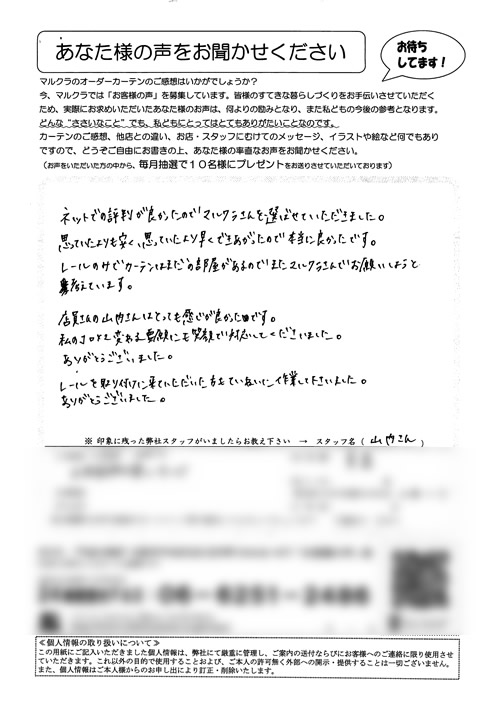 あなた様の声をお聞かせください
お待ち
してます!
マルクラのオーダーカーテンのご感想はいかがでしょうか?
今、マルクラでは「お客様の声」を募集しています。皆様のすてきな暮らしづくりをお手伝いさせていただく
ため、実際にお求めいただいたあなた様のお声は、何よりの励みとなり、また私どもの今後の参考となります。
どんな“ささいなこと”でも、私どもにとってはとてもありがたいことなのです。
カーテンのご感想、他店との違い、お店・スタッフにむけてのメッセージ、イラストや絵など何でもあり
ですので、どうぞご自由にお書きの上、あなた様の率直なお声をお聞かせください。
(お声をいただいた方の中から、毎月抽選で10名様にプレゼントをお送りさせていただいております)
ネットでの評判が良かったのでマルクラさんを選ばせていただきました。
思っていたよりも安く、思っていたより早くできあがったので本当に良かったです。
レールのみでカーテンはまだの部屋があるのでまたマルクラさんでお願いしようと
考えています。
店員さんの山内さんはとっても感じが良かったです。
私のコロコロ変わる要願にも笑顔で対応してくださいました。
ありがとうございました。
レールを取り付けに来ていただいた方もていねいに作業して下さいました。
ありがとうございました。
※ 印象に残った弊社スタッフがいましたらお教え下さい → スタッフ名 ( 山内さん )
06-6251-2486
≪個人情報の取り扱いについて≫
この用紙にご記入いただきました個人情報は、弊社にて厳重に管理し、ご案内の送付ならびにお客様へのご連絡に限り使用させ
ていただきます。これ以外の目的で使用することおよび、ご本人の許可無く外部への開示・提供することは一切ございません。
また、個人情報はご本人様からのお申し出により訂正・削除いたします。